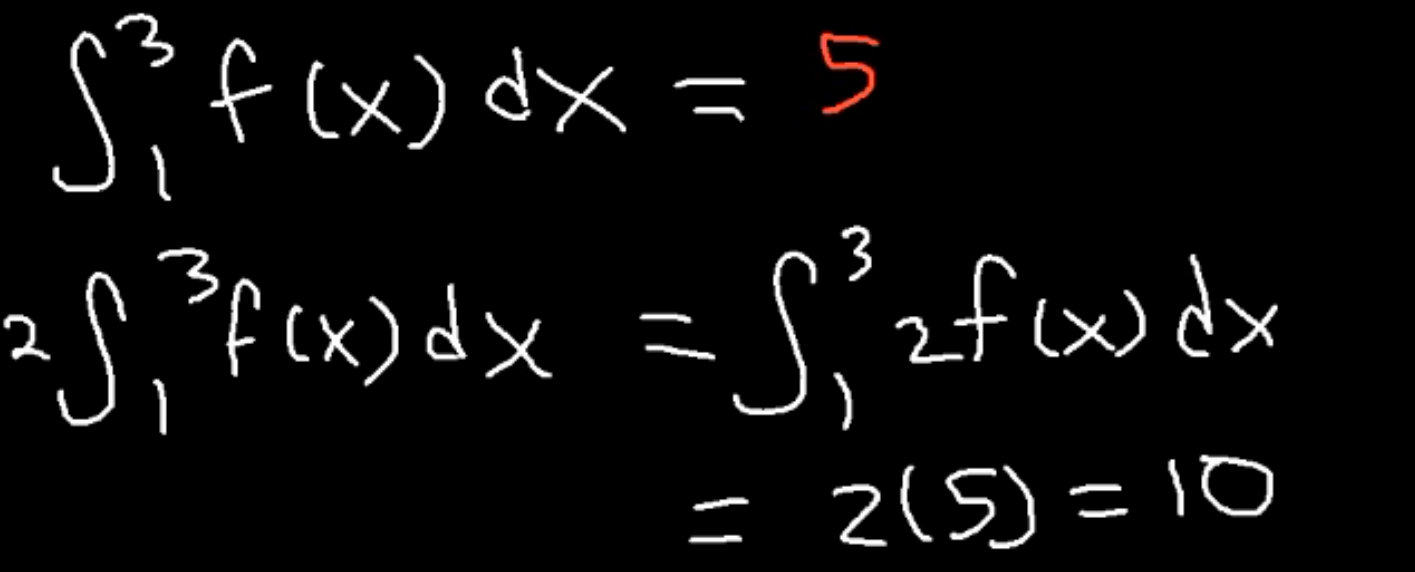 ∫₁³ f(x) dx = 5
2∫₁³ f(x) dx = ∫₁³ 2f(x) dx
= 2(5) = 10